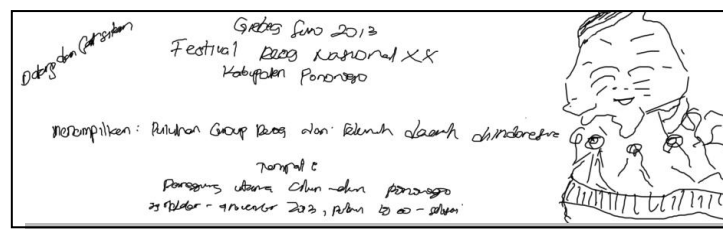 Datang dan Saksikan
Grebeg Suro 2013
Festival Reog Nasional XX
Kabupaten Ponorogo
menampilkan : Puluhan Group Reog dari Seluruh daerah diIndonesia
Tempat :
Panggung utama Alun-alun ponorogo
29 Oktober - 4 november 2013, pukul 00 - selesai